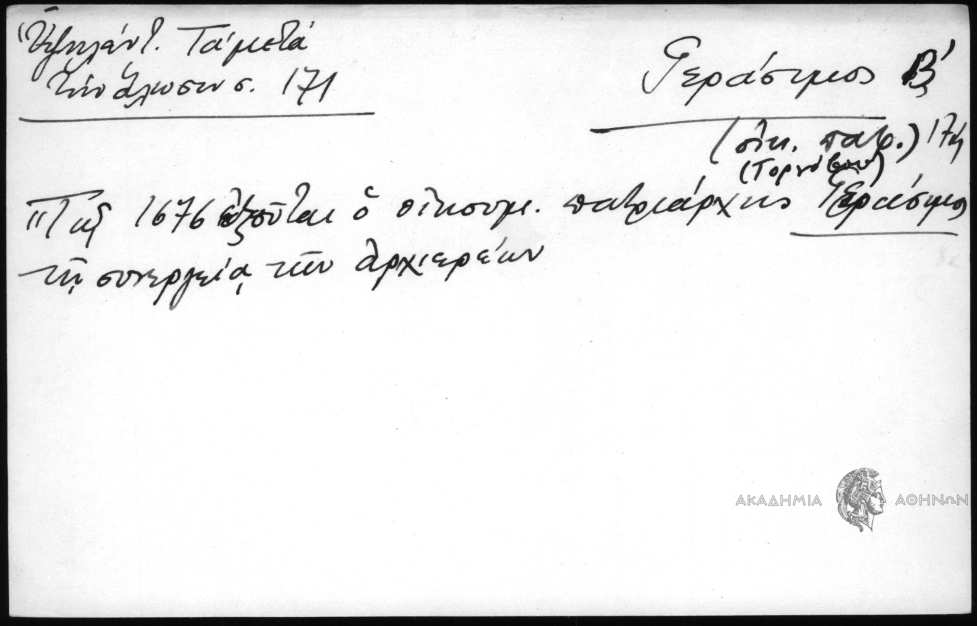 Ὑψηλάντ. Τὰ μετὰ
τὴν ἅλωσιν σ. 171
Γεράσιμος Β΄
(οἰκ. πατρ.) 17ος
(Τορνόβου)
"Τῷ 1676 ἐξοῦται ὁ οἰκουμ. πατριάρχης Γεράσιμος
τῇ συνεργείᾳ τῶν ἀρχιερέων
ΑΚΑΔΗΜΙΑ ΑΘΗΝΩΝ